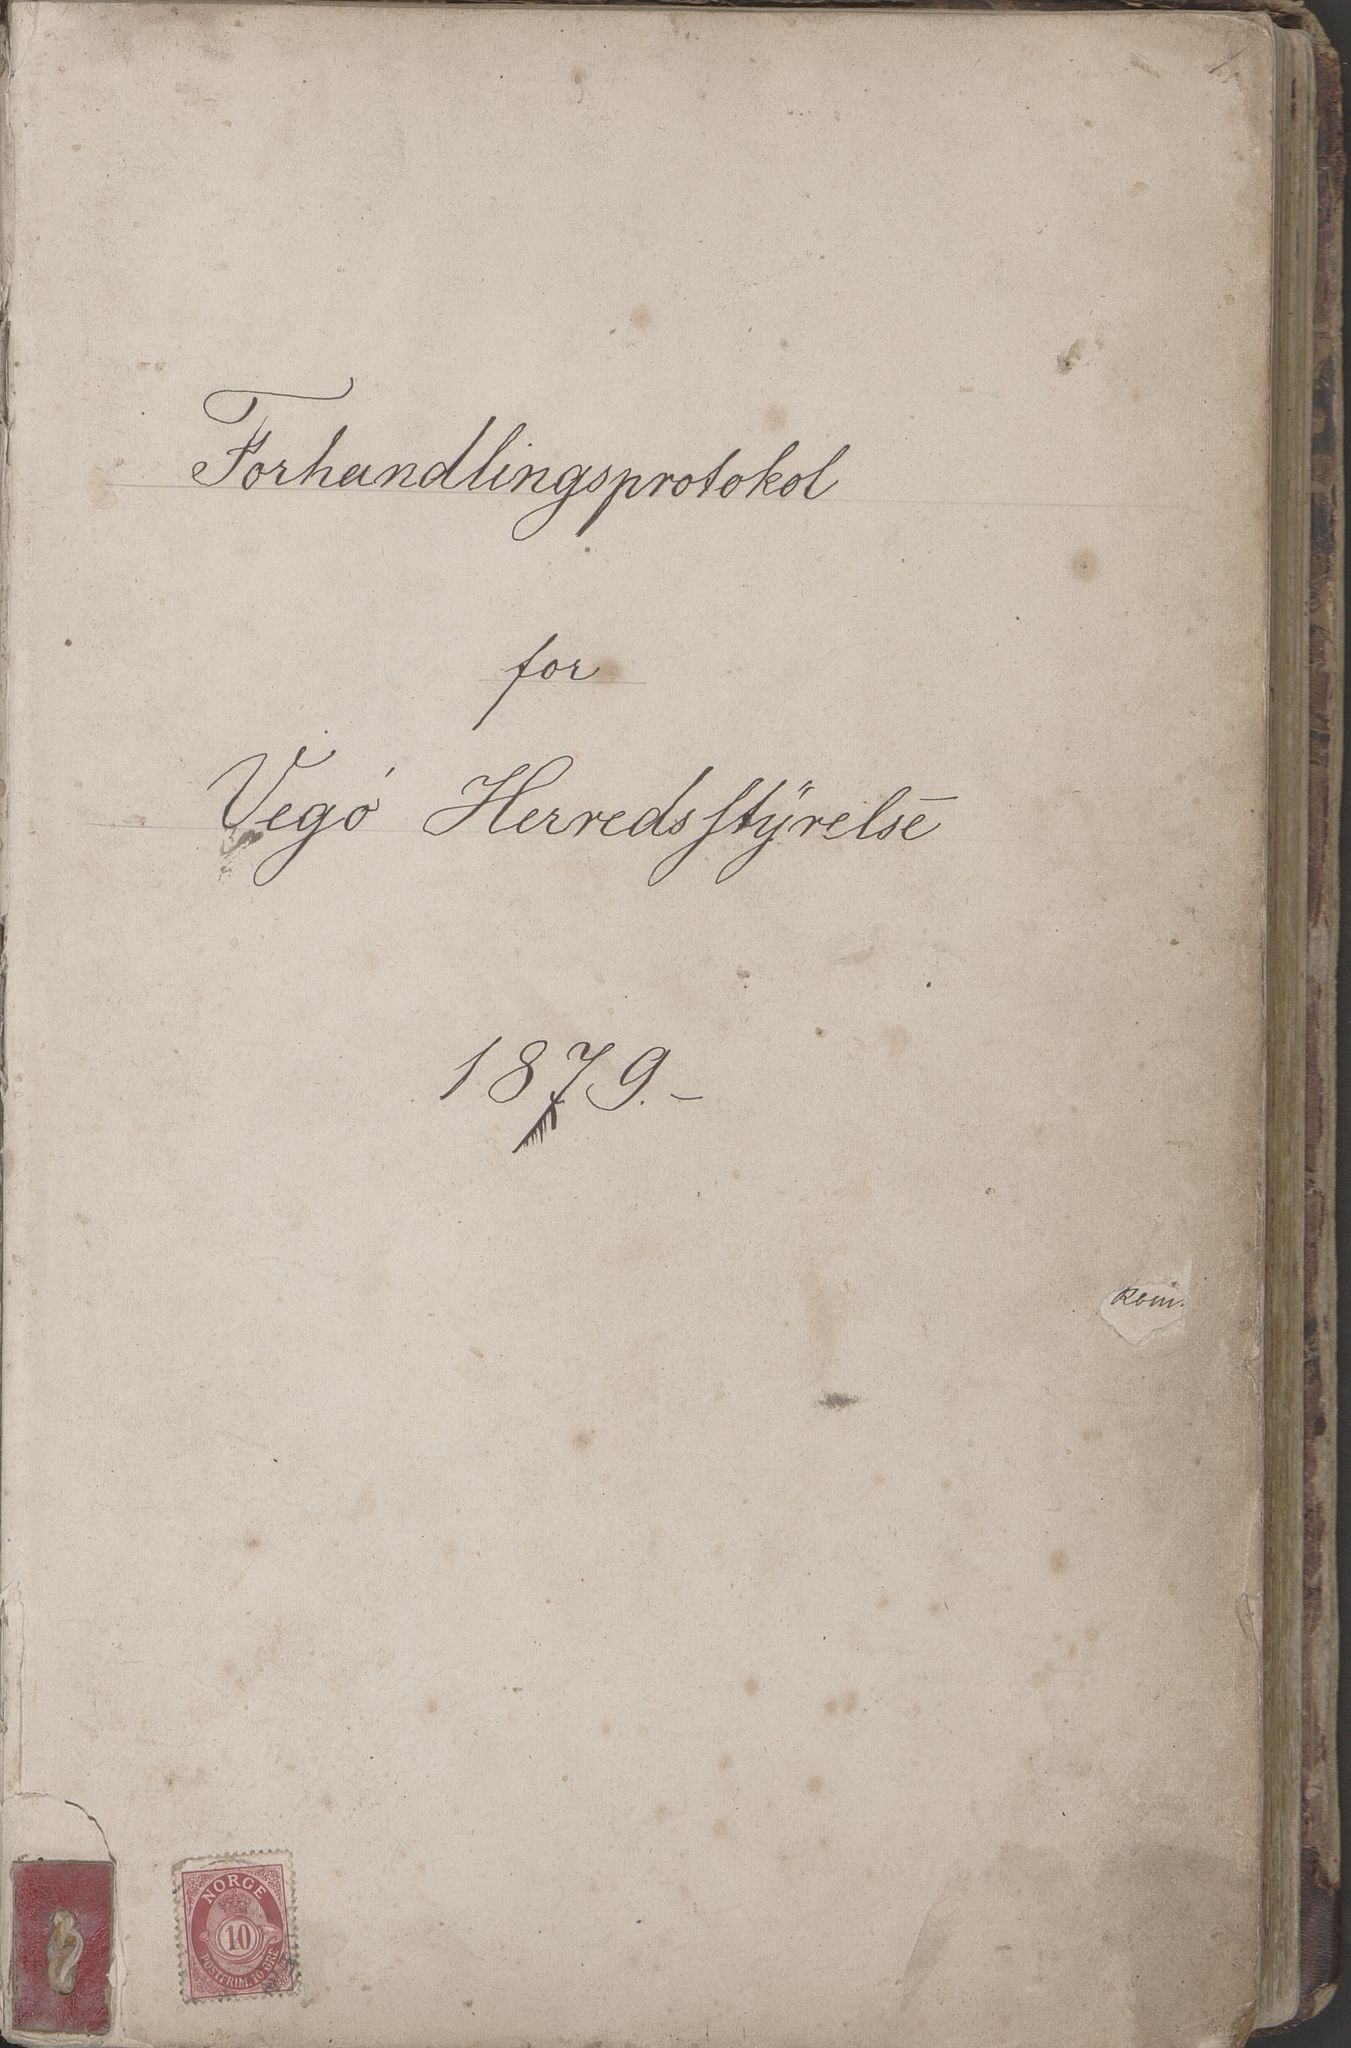 1
Forhandlingsprotokol
for
Vegö Herredsstÿrelse
1879.–
Kom.
NORGE
10
POSTFRIM. 10 ØRE